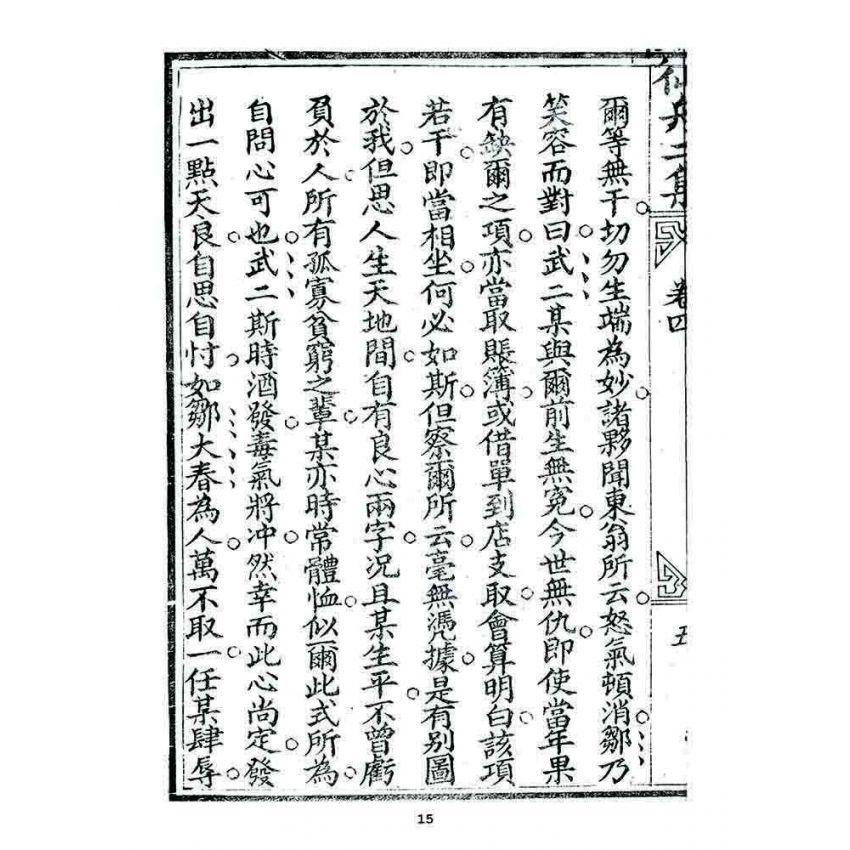 爾等無干切勿生端為妙諸夥聞東翁所云怒氣頓消鄒乃
笑容而對曰武二某與爾前生無冤今世無仇即使當年果
有缺爾之項亦當取賬簿或借單到店支取會算明白該項
若干即當相坐何必如斯但察爾所云毫無憑據是有別圖
於我但思人生天地間自有良心兩字况且某生平不曾虧
負於人所有孤寡貧窮之輩某亦時常體恤似爾此式所為
自問心可也武二斯時酒發毒氣將冲然幸而此心尚定發
出一點天良自思自忖如鄒大春為人萬不取一任某肆辱
二集
卷四
五
15